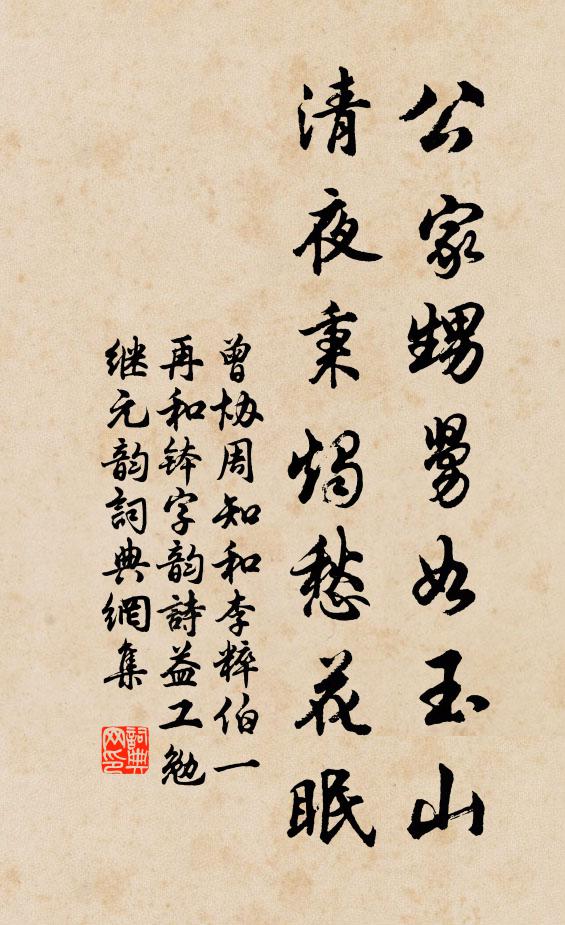 公家甥舅如玉山
清夜秉烛愁花眠
曾协周知和李粹伯一
再和钵字韵詩益工勉
继元韵詞典網集
詞典网印